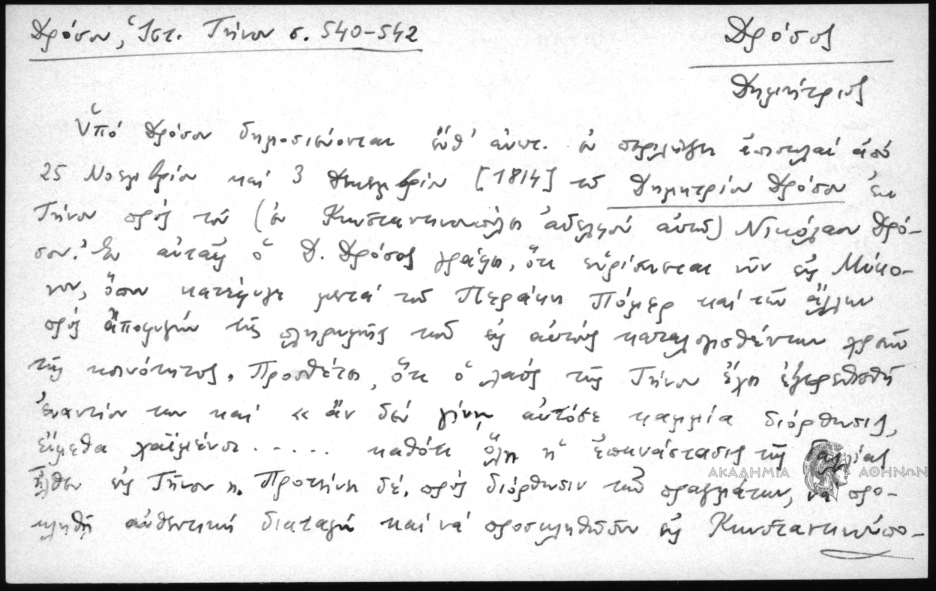 Δρόσου, Ἱστ. Τήνου σ. 540-542
Δρόσος
Δημήτριος
Ὑπό Δρόσου δημοσιεύονται ἔνθ' ἀνωτ. ἐν περιλήψει ἐπιστολαί ἀπό
25 Νοεμβρίου καί 3 Δεκεμβρίου [1814] τοῦ Δημητρίου Δρόσου ἐκ
Τήνου πρός τόν (ἐν Κωνσταντινουπόλει ἀδελφόν αὐτοῦ) Νικόλαον Δρό-
σον. Ἐν αὐταῖς ὁ Δ. Δρόσος γράφει, ὅτι εὑρίσκεται νῦν εἰς Μύκο-
νον, ὅπου κατέφυγε μετά τοῦ Περάκη Πώμερ καί τῶν ἄλλων
πρός ἀποφυγήν τῆς πληρωμῆς τῶν εἰς αὐτούς καταλογισθέντων χρεῶν
τῆς κοινότητος. Προσθέτει, ὅτι ὁ λαός τῆς Τήνου ἔχει ἐξερεθισθῆ
ἐναντίον των καί « ἄν δέν γίνῃ αὐτόσε καμμία διόρθωσις,
εἴμεθα χαϊμένοι ..... καθότι ὅλη ἡ ἐπανάστασις τῆς Γαλλίας
ἦλθεν εἰς Τῆνον ». Προτείνει δέ, πρός διόρθωσιν τῶν πραγμάτων, νά προ-
κληθῇ αὐθεντική διαταγή καί νά προσκληθοῦν εἰς Κωνσταντινούπο-
ΑΚΑΔΗΜΙΑ ΑΘΗΝΩΝ